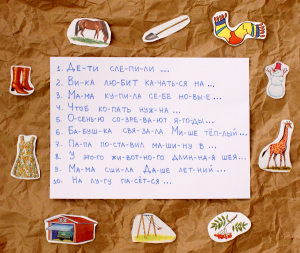 1. Де-ти сле-пи-ли ...
2. Ви-ка лю-бит ка-чать-ся на ...
3. Ма-ма ку-пи-ла се-бе но-вы-е ...
4. Чтоб ко-пать нуж-на ...
5. О-сень-ю со-зре-ва-ют я-го-ды ...
6. Ба-буш-ка свя-за-ла Ми-ше тёп-лый ...
7. Па-па по-ста-вил ма-ши-ну в ...
8. У э-то-го жи-вот-но-го длин-на-я шея ...
9. Ма-ма сши-ла Да-ше лет-ний ...
10. На лу-гу па-сёт-ся ...